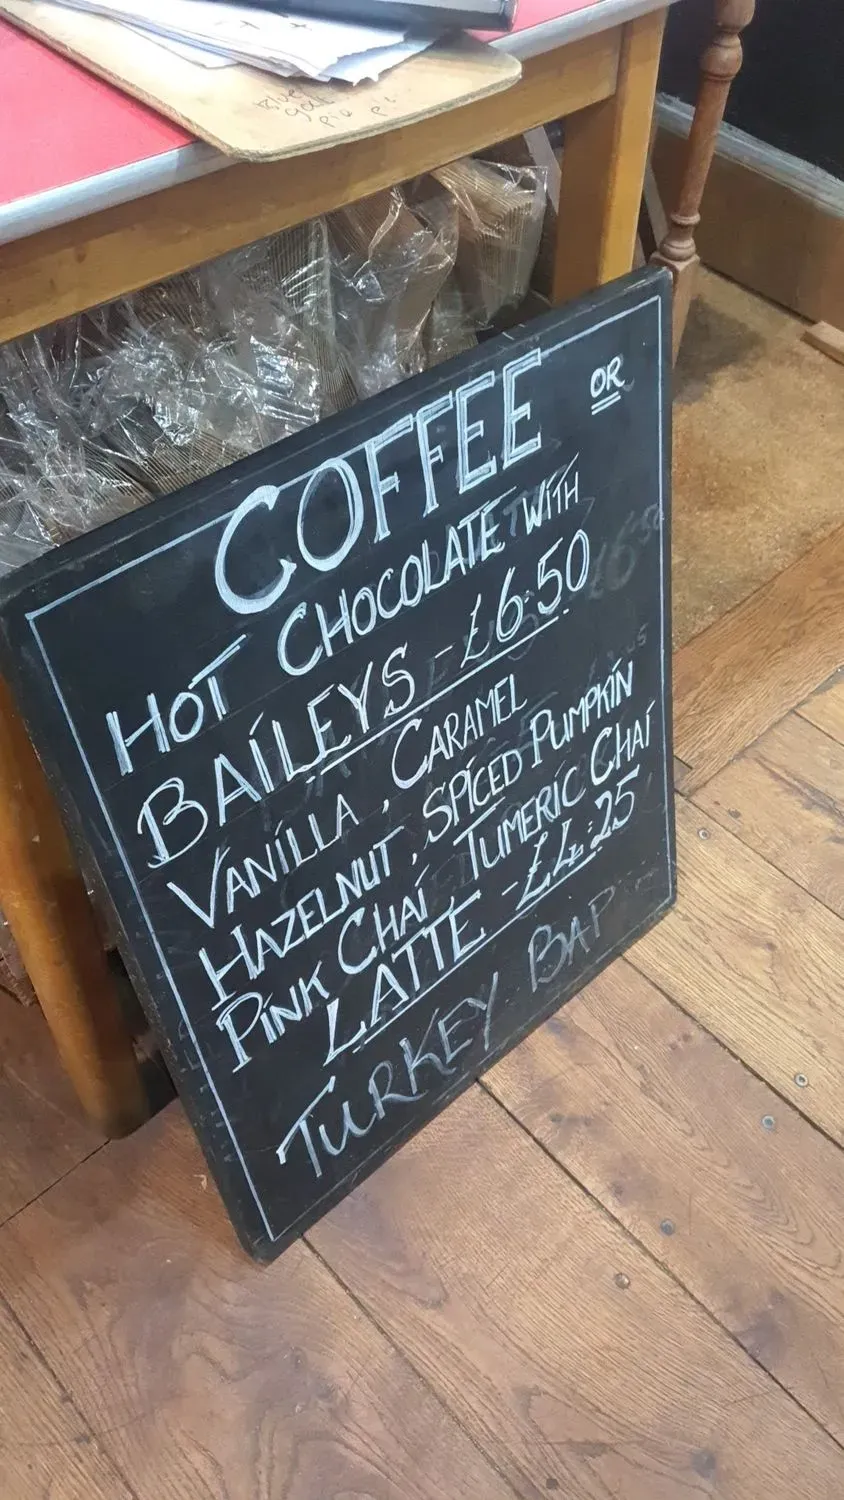 COFFEE OR
HOT CHOCOLATE WITH
BAILEYS - £6.50
VANILLA, CARAMEL
HAZELNUT, SPICED PUMPKIN
PINK CHAI TUMERIC CHAI
LATTE - £4.25
TURKEY BAP